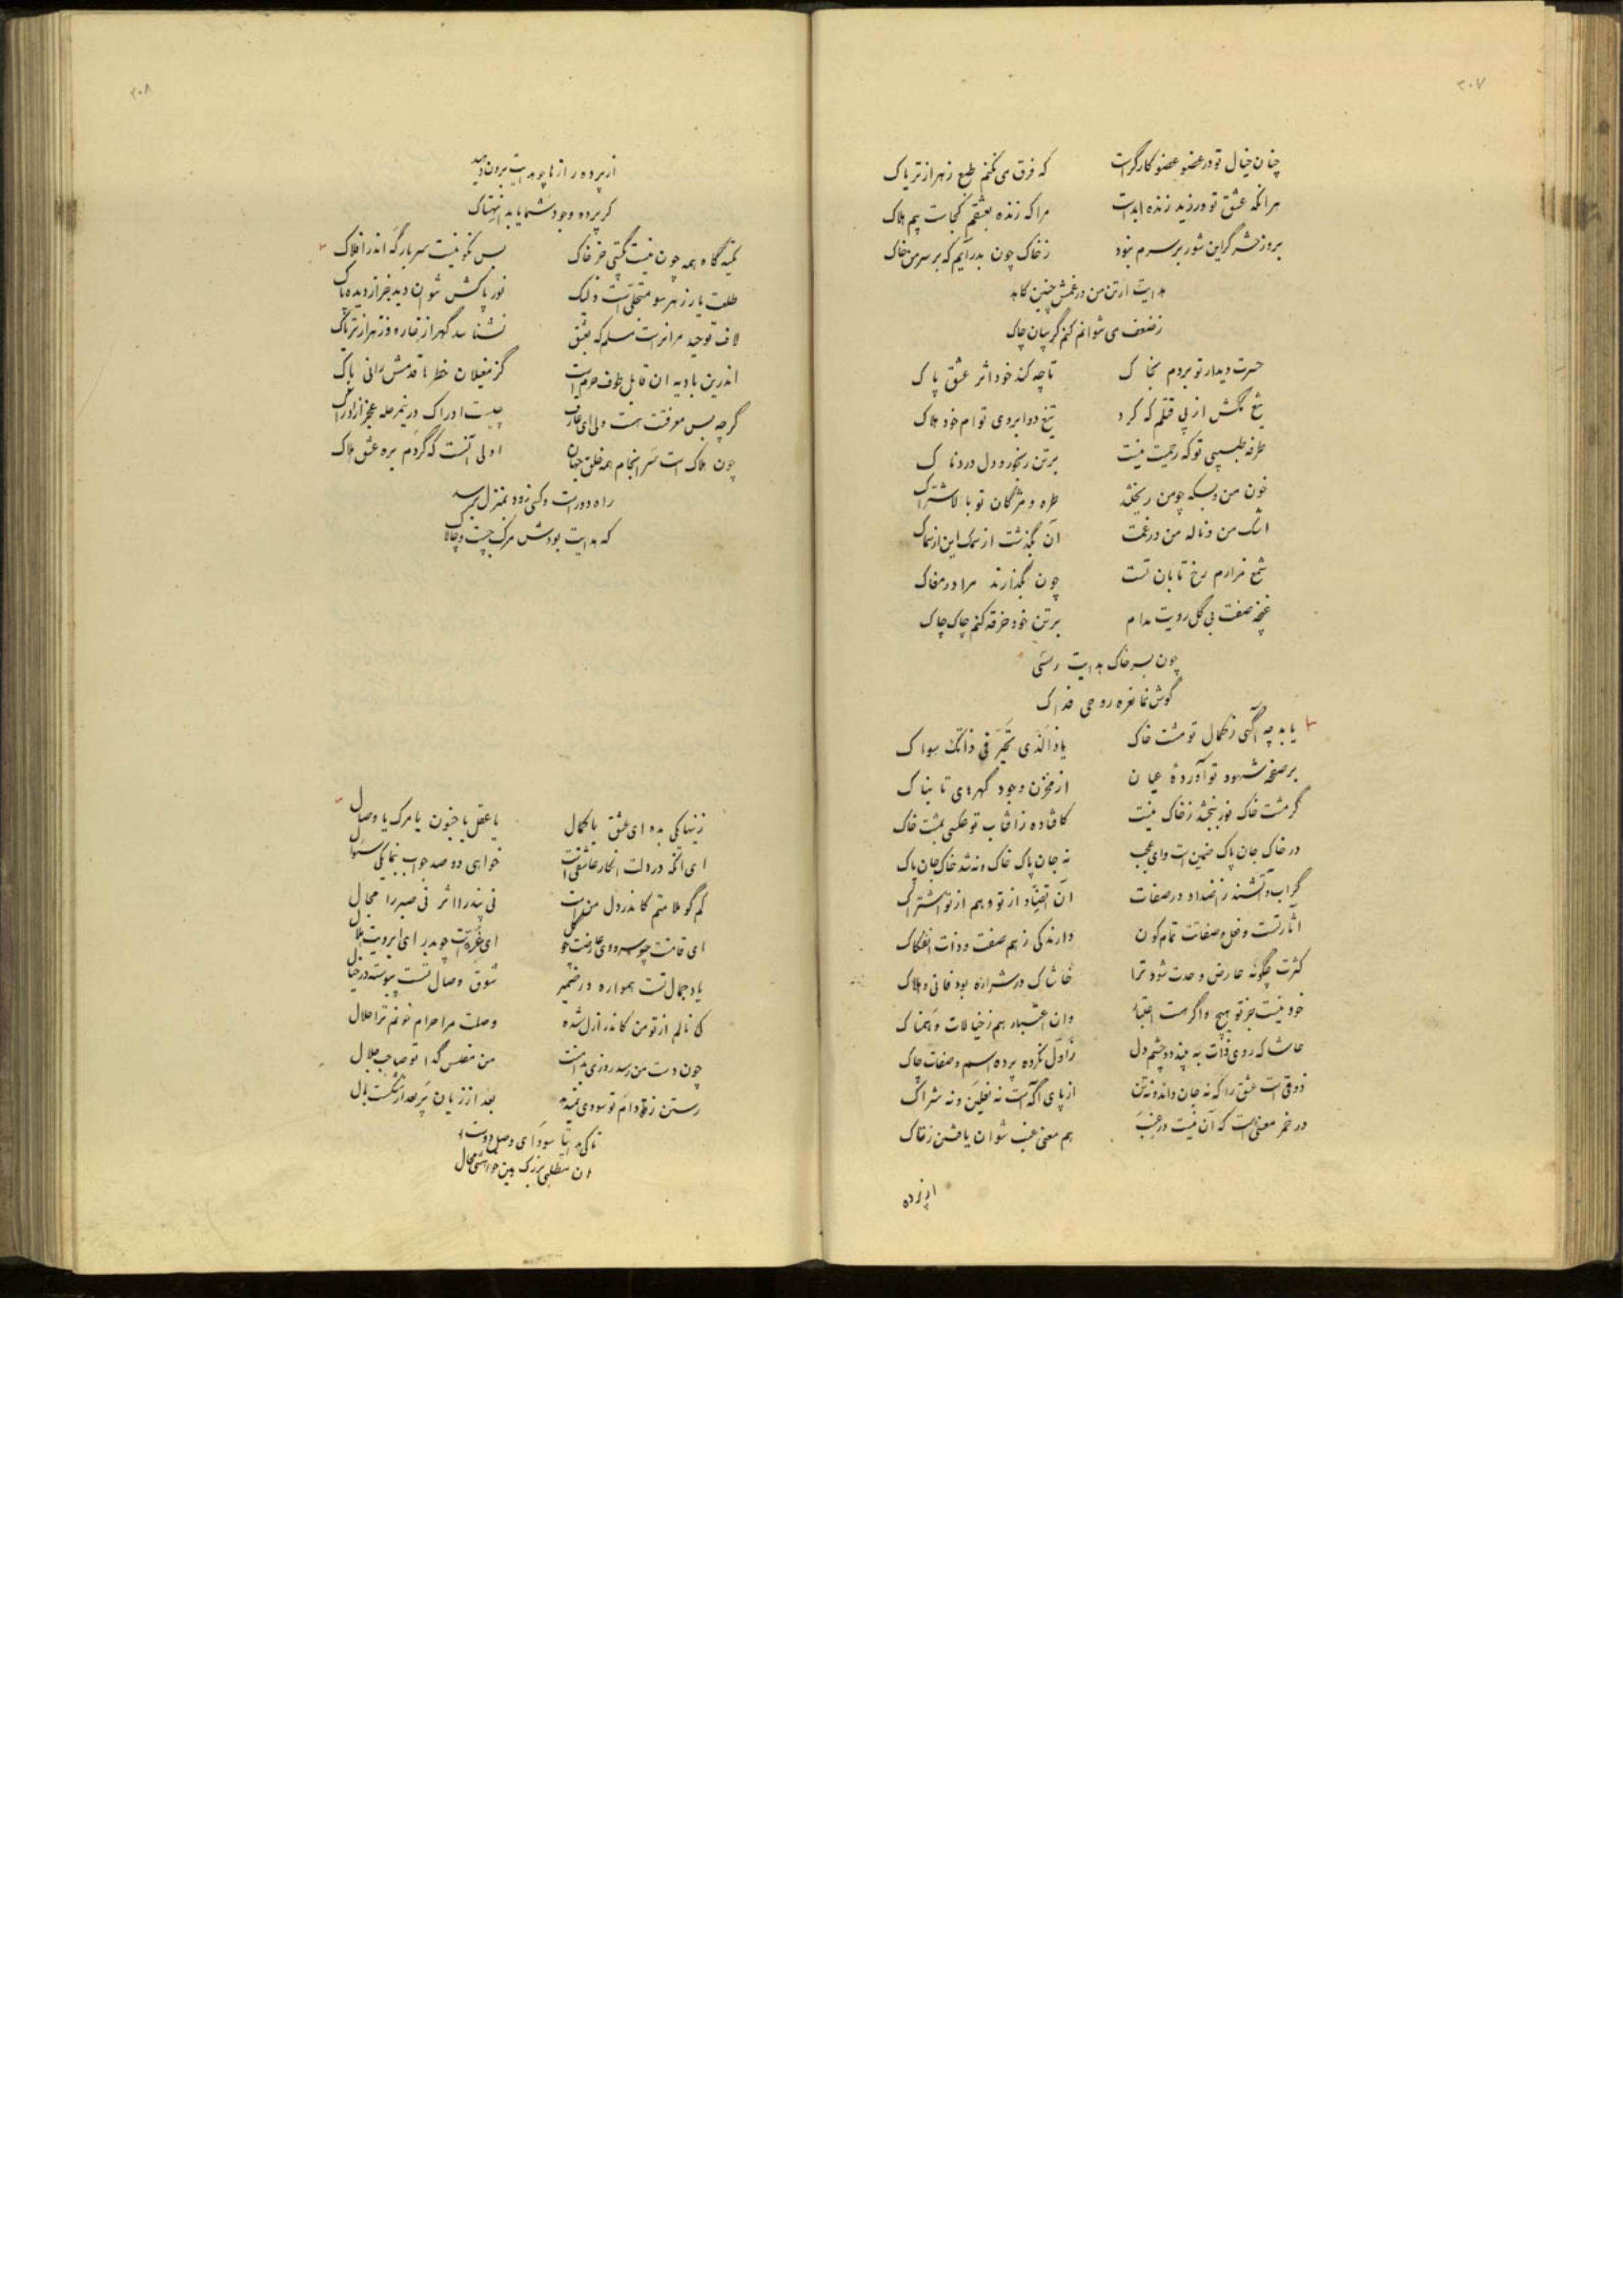 ۲۰۷
چنان خیال تو در عضو عضو کارگر است
که فرق می نکنم طبع زهر از تریاک
هر آنکه عشق تو ورزید زنده ابد است
مرا که زنده بعشقم کجاست بیم هلاک
بروز حشر گر این شور بر سرم نبود
ز خاک چون بدر آیم که بر سر من خاک
هدایت ار تن من در غمش چنین کاهد
ز ضعف می نتوانم کنم گریبان چاک
حسرت دیدار تو بردم بخاک
تا چه کند خود اثر عشق پاک
تیغ مکش از پی قتلم که کرد
تیغ دو ابروی توام خود هلاک
طرفه طبیبی تو که رحمیت نیست
بر تن رنجور و دل دردناک
خون من و بسکه چو من ریختند
طره و مژگان تو بالاشتراک
اشک من و ناله من در غمت
آن بگذشت از سمک این از سماک
شمع مزارم رخ تابان تست
چون بگذارند مرا در مغاک
غنچه صفت بی گل رویت مدام
بر تن خود خرقه کنم چاک چاک
چون بسر خاک هدایت رسی
گوش نما نعره روحی فداک
یابد چه آگهی ز کمال تو مشت خاک
یا ذالذی تحیر فی ذاتک سواک
بر صفحه شهود تو آوردهٔ عیان
از مخزن وجود گهرهای تابناک
گر مشت خاک نور ببخشد ز خاک نیست
کافتاده ز آفتاب تو عکسی بمشت خاک
در خاک جان پاک ضمین است وای عجب
نه جان پاک خاک و نه شد خاک جان پاک
گر آب و آتشند ز اضداد در صفات
آن تضاد از تو و هم از تو اشتراک
آثار تست و فعل و صفاتت تمام کون
دارند کی ز هم صفت و ذات انفکاک
کثرت چگونه عارض وحدت شود ترا
خاشاک در شراره بود فانی و هلاک
خود نیست جز تو هیچ و اگر هست اعتبار
وان اعتبار هم ز خیالات وهمناک
حاشا که روی ذات به بیند دو چشم دل
ز اول نکرده پرده اسم و صفات چاک
ذوقی است عشق را که نه جان داند و نه تن
از پای آگه است نه نعلین و نه شراک
در خمر معنی است که آن نیست در عنب
هم معنی عنب نتوان یافتن ز تاک
از پرده
۲۰۸
از پرده راز ها چو هدایت برون دهید
گر پرده وجود شما یابد انهتاک
تکیه گاه همه چون نیست بگیتی جز خاک
پس نکو نیست سر بارگه اندر افلاک
طلعت یار ز هر سو متجلی است ولیک
نور پاکش نتوان دید جز از دیده پاک
لاف توحید مر آنراست مسلم که بعشق
نشناسد گهر از خار و ز زهر از تریاک
اندرین بادیه آن قابل طوف حرم است
کز مغیلان خطر ها قدمش رانی باک
گرچه بس معرفتت هست ولی ای عارف
چیست ادراک درین مرحله عجز از ادراک
چون هلاک است سر انجام همه خلق جهان
اولی آنست که گردم بره عشق هلاک
راه دور است و کسی زود بمنزل برسد
که هدایت بودش مرکب چست و چالاک
زینها یکی بده ای عشق با کمال
یا عقل یا جنون یا مرگ یا وصال
ای آنکه در دلت انکار عاشقی است
خواهی دو صد جواب بنما یکی سؤال
کم گو ملامتم کاندر دل من است
نی پند را اثر نی صبر را مجال
ای قامتت چو سرو وی عارضت چو گل
ای غره ات چو بدر ای ابرویت هلال
یاد جمال تست همواره در ضمیر
شوق وصال تست پیوسته در خیال
کی نالم از تو من کاندر ازل شده
وصلت مرا حرام خونم ترا حلال
چون دست من رسد روزی بدامنت
من مفلس گدا تو صاحب جلال
رستن ز دام تو سودی نمیدهد
بعد از زیان پر بعد از شکست بال
تا کی هدایتا سودای وصل دوست
آن مطلبی بزرگ وین خواهشی محال